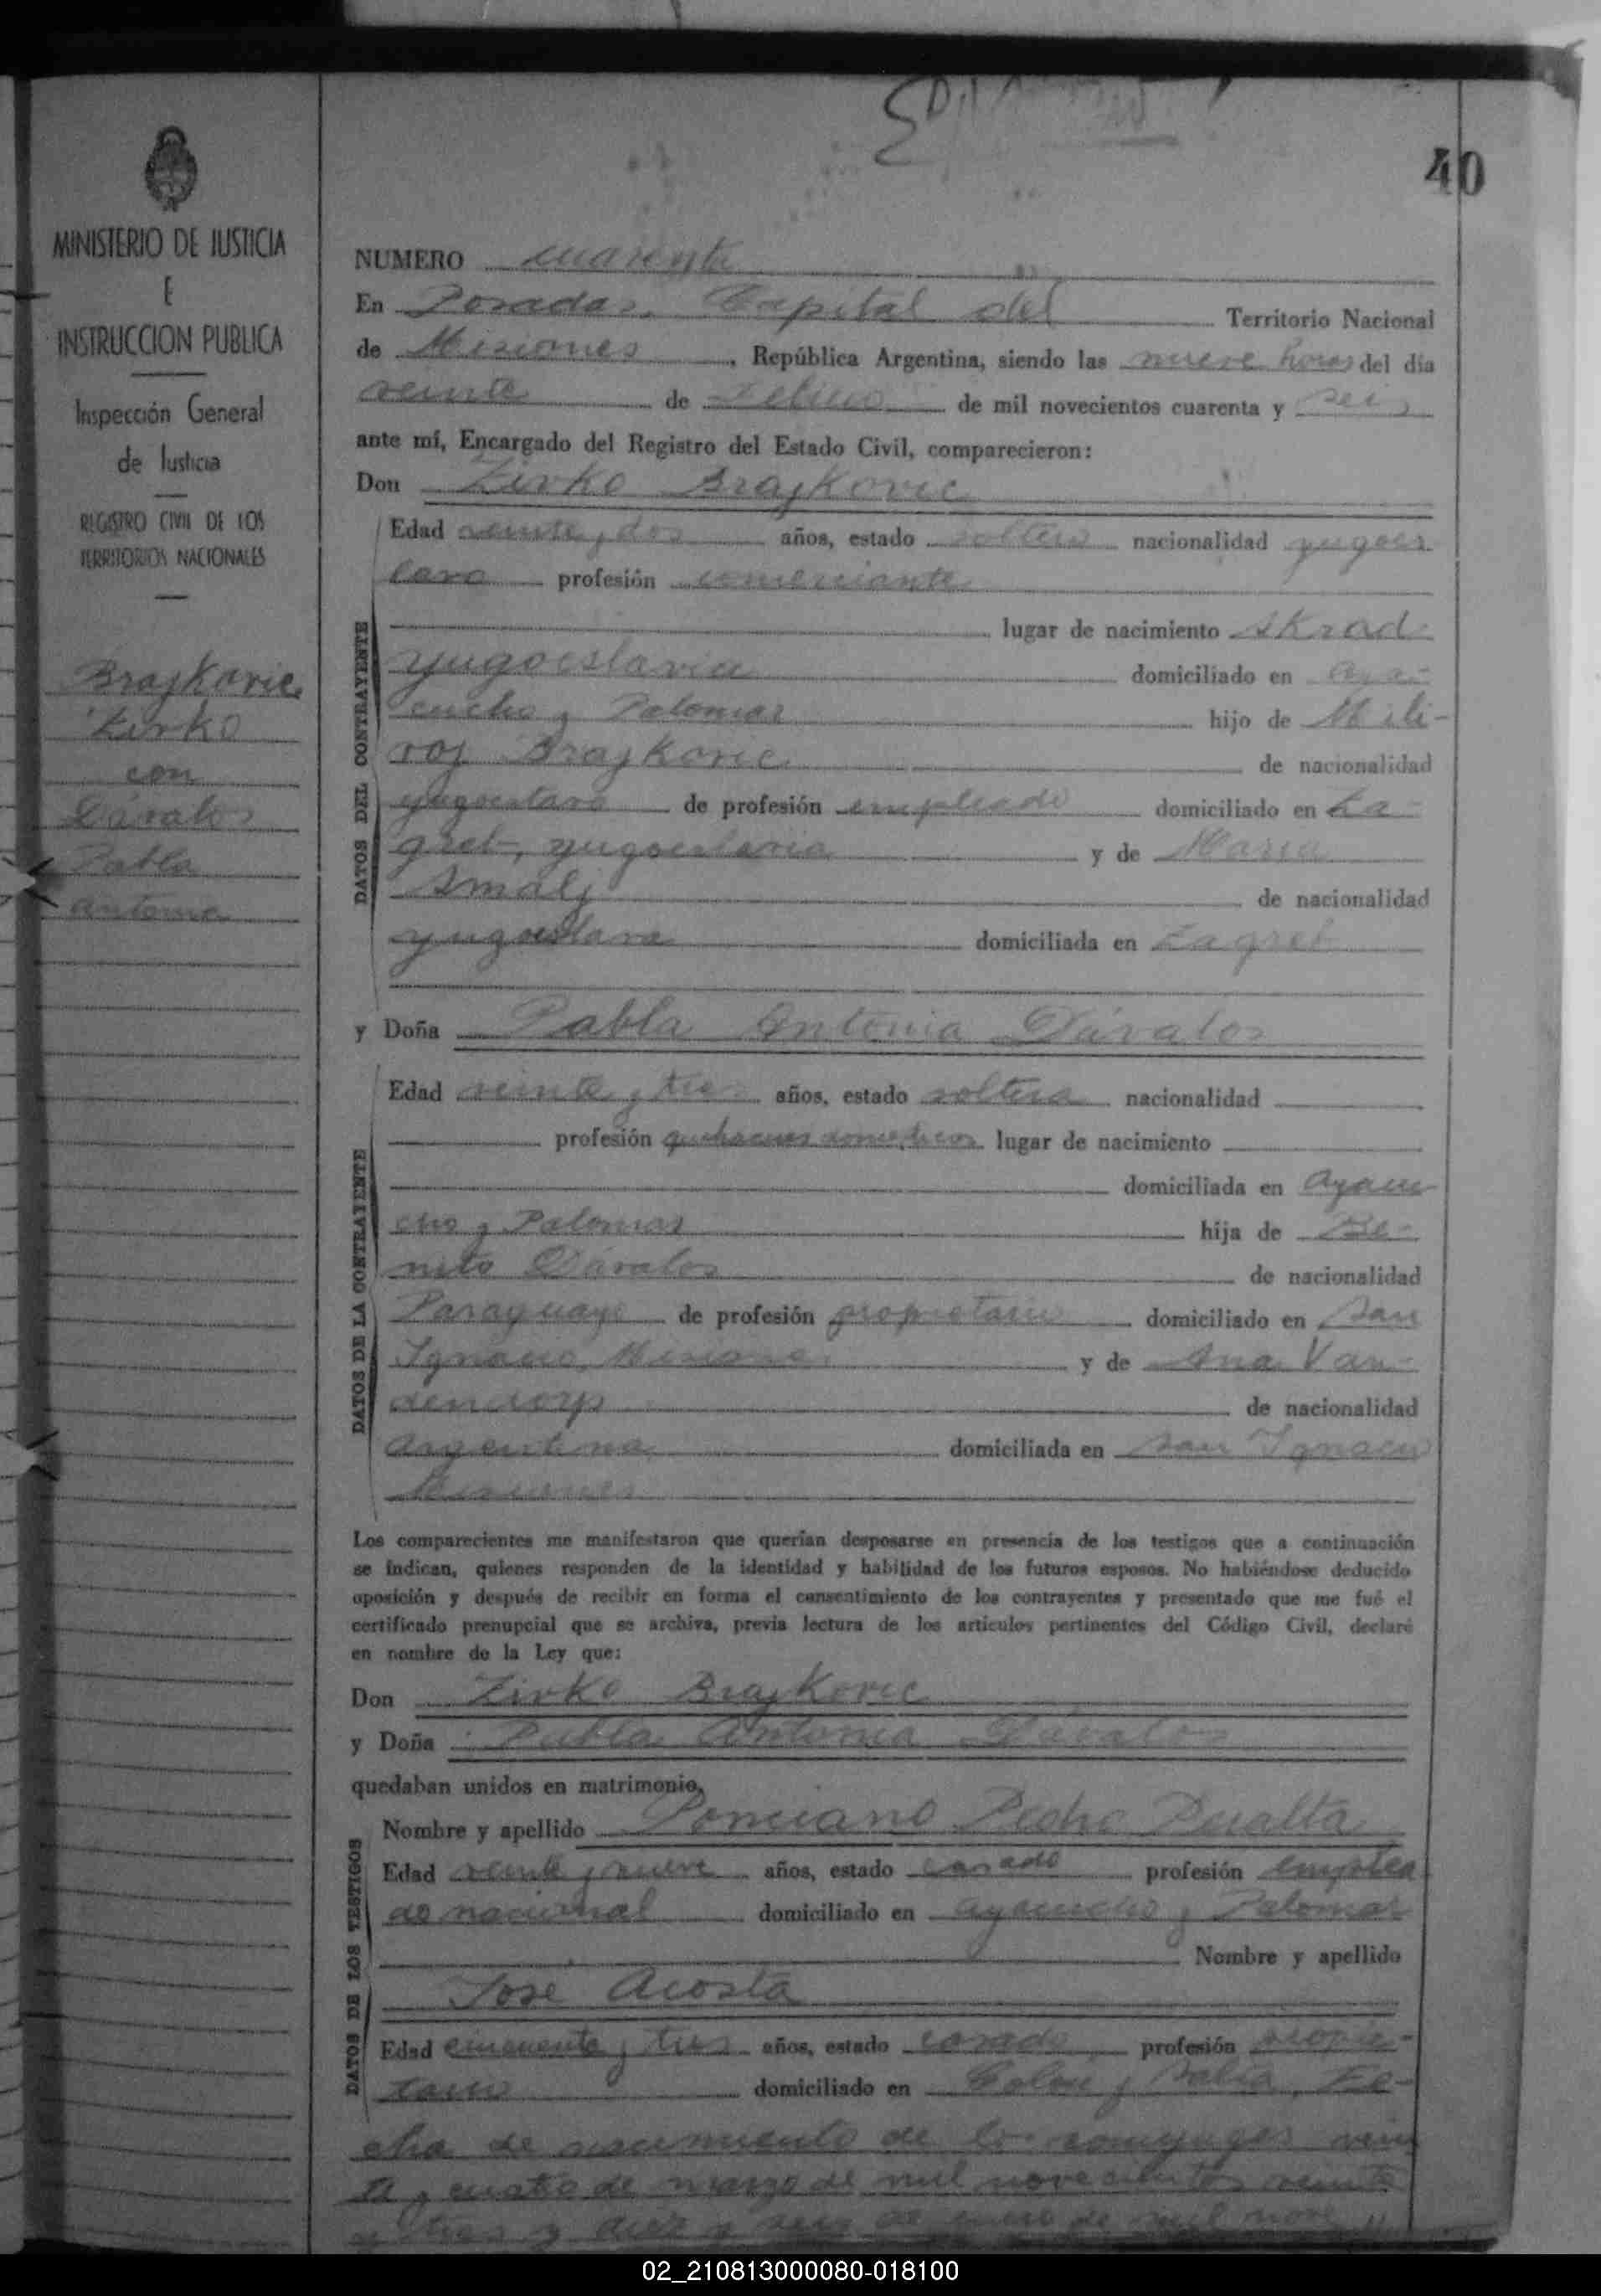 40
MINISTERIO DE JUSTICIA
E
INSTRUCCION PUBLICA
Inspección General
de Justicia
REGISTRO CIVIL DE LOS
TERRITORIOS NACIONALES
Brajkovic
Zivko
con
Dávalos
Pabla
Antonia
NUMERO cuarenta
En Posadas, Capital del Territorio Nacional
de Misiones, República Argentina, siendo las nueve horas del día
veinte de Febrero de mil novecientos cuarenta y seis
ante mí, Encargado del Registro del Estado Civil, comparecieron:
Don Zivko Brajkovic
DATOS DEL CONTRAYENTE
Edad veinte y dos años, estado soltero nacionalidad yugoes
lavo profesión comerciante
lugar de nacimiento Skrad
yugoeslavia domiciliado en Aya-
cucho y Palomar hijo de Mili-
voj Brajkovic de nacionalidad
yugoeslavo de profesión empleado domiciliado en Za-
greb, yugoeslavia y de Maria
Smalj de nacionalidad
yugoeslava domiciliada en Zagreb
y Doña Pabla Antonia Dávalos
DATOS DE LA CONTRAYENTE
Edad veinte y tres años, estado soltera nacionalidad
profesión quehaceres domésticos lugar de nacimiento
domiciliada en Ayacu
cho y Palomar hija de Be-
nito Dávalos de nacionalidad
Paraguayo de profesión propietario domiciliado en San
Ignacio, Misiones y de Ana Van-
dendorp de nacionalidad
argentina domiciliada en San Ignacio
Misiones
Los comparecientes me manifestaron que querían desposarse en presencia de los testigos que a continuación
se indican, quienes responden de la identidad y habilidad de los futuros esposos. No habiéndose deducido
oposición y después de recibir en forma el consentimiento de los contrayentes y presentado que me fué el
certificado prenupcial que se archiva, previa lectura de los artículos pertinentes del Código Civil, declaré
en nombre de la Ley que:
Don Zivko Brajkovic
y Doña Pabla Antonia Dávalos
quedaban unidos en matrimonio.
DATOS DE LOS TESTIGOS
Nombre y apellido Ponciano Pedro Peralta
Edad veinte y nueve años, estado casado profesión emplea
do nacional domiciliado en Ayacucho y Palomar
Nombre y apellido
José Acosta
Edad cincuenta y tres años, estado casado profesión propie-
tario domiciliado en Colón y Salta, Fe-
cha de nacimiento de los conyuges vein
te y cuatro de marzo de mil novecientos veinte
y tres y diez y seis de enero de mil nove
02_210813000080-018100